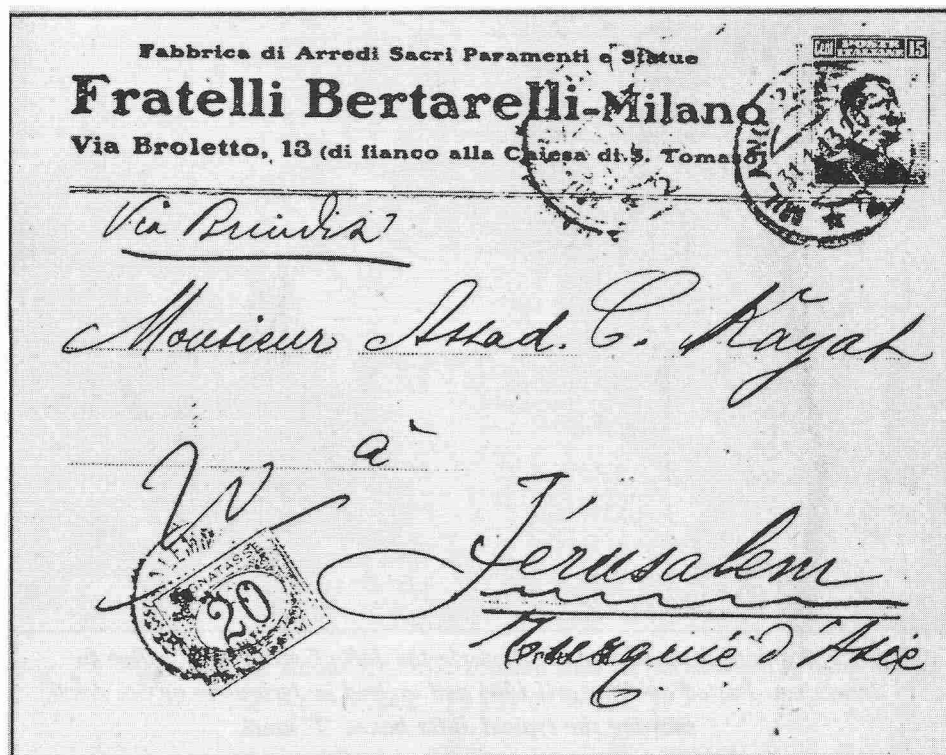 Fabbrica di Arredi Sacri Paramenti e Statue
Fratelli Bertarelli-Milano
Via Broletto, 13 (di fianco alla Chiesa di S. Tomaso)
Cent POSTE ITALIANE 15
Via Brindisi
Monsieur Assad. C. Kayat
à
Jérusalem
Turquie d'Asie
20